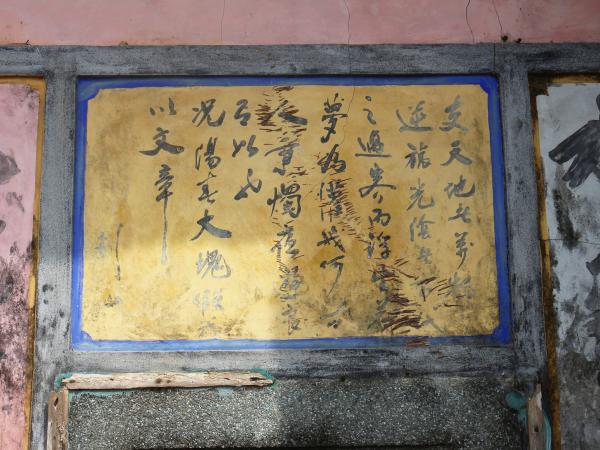 夫天地者萬物
逆旅光陰者
之過客而浮生若
夢為懽幾何古
人秉燭夜遊良
有以也
況陽春大塊假我
以文章